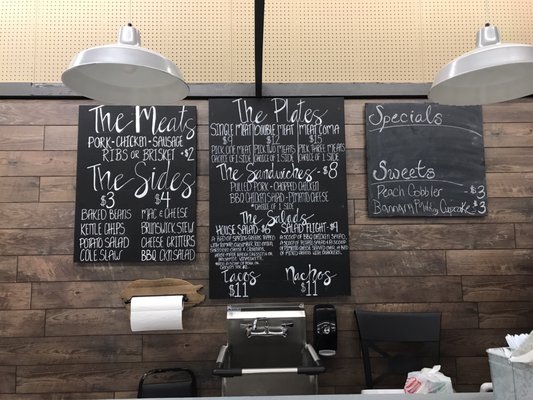 The Meats
PORK - CHICKEN - SAUSAGE
RIBS OR BRISKET - $2
The Sides
$3 $4
BAKED BEANS
KETTLE CHIPS
POTATO SALAD
COLE SLAW
MAC & CHEESE
BRUNSWICK STEW
CHEESE GRITTERS
The Plates
SINGLE MEAT
$9
PICK ONE MEAT
CHOICE OF 1 SIDE
DOUBLE MEAT
$12
PICK TWO MEATS
CHOICE OF 1 SIDE
MEAT COMA
$15
PICK THREE MEATS
CHOICE OF 1 SIDE
The Sandwiches - $8
PULLED PORK - CHOPPED CHICKEN
BBQ CHICKEN SALAD - PIMENTO CHEESE
* CHOICE OF 1 SIDE
The Salads
HOUSE SALAD - $6
SALAD FLIGHT - $9
Tacos
$11
Nachos
$11
Specials
Sweets
Peach Cobbler $3